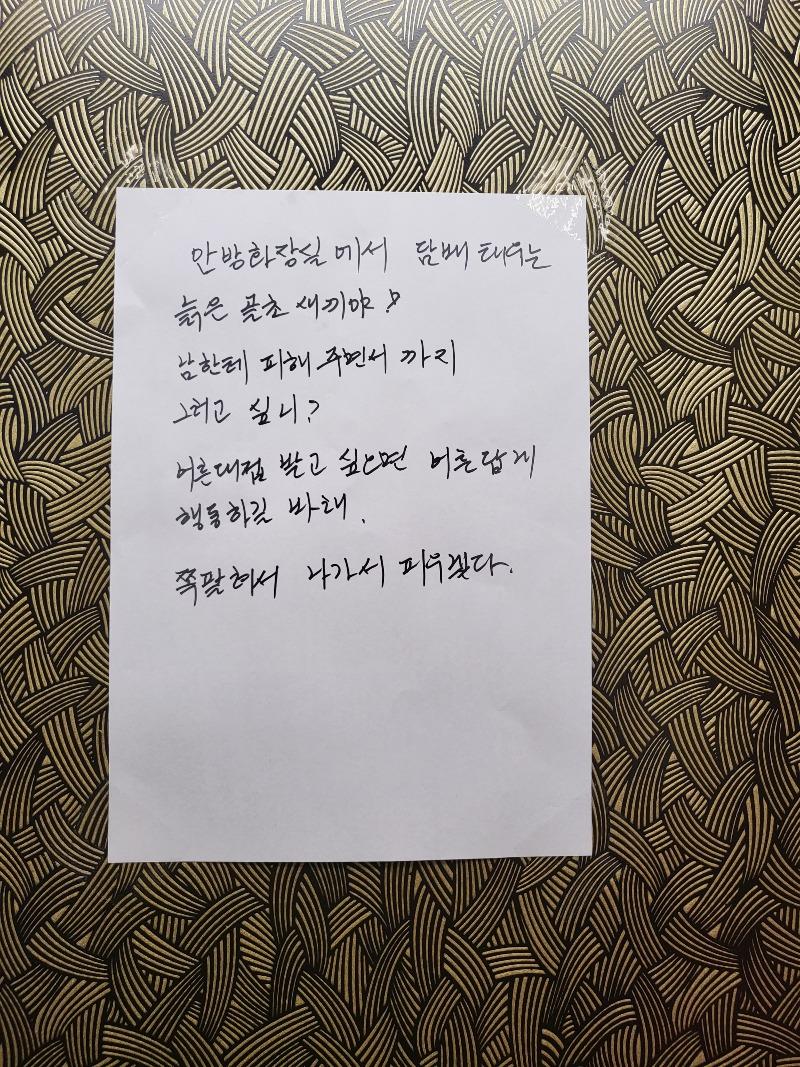 안방화장실에서 담배 태우는
늙은 꼴초 새끼야!
남한테 피해 주면서 까지
그러고 싶니?
어른대접 받고 싶으면 어른답게
행동하길 바래.
쪽팔려서 나가서 피우겠다.